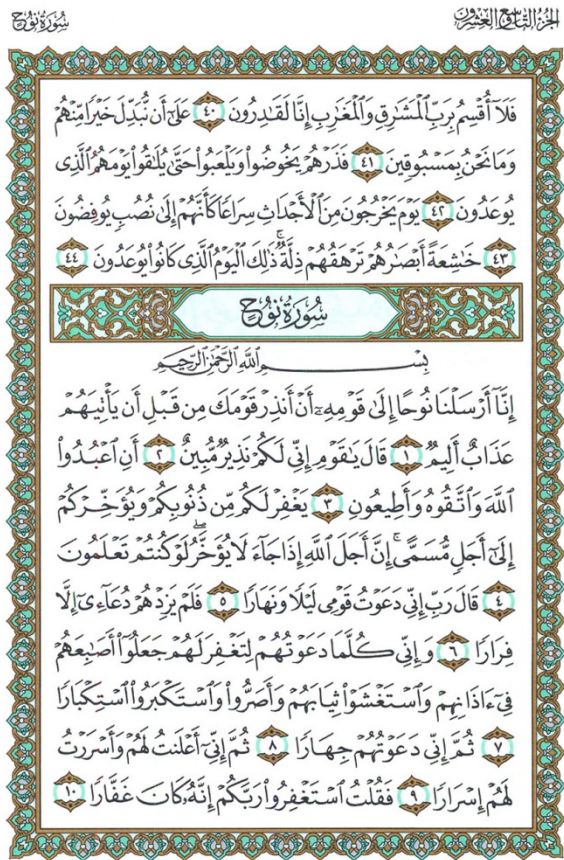 الجزء التاسع والعشرون
سُورَةُ نُوحٍ
فَلَآ أُقْسِمُ بِرَبِّ ٱلْمَشَٰرِقِ وَٱلْمَغَٰرِبِ إِنَّا لَقَٰدِرُونَ ٤٠ عَلَىٰٓ أَن نُّبَدِّلَ خَيْرًا مِّنْهُمْ
وَمَا نَحْنُ بِمَسْبُوقِينَ ٤١ فَذَرْهُمْ يَخُوضُوا۟ وَيَلْعَبُوا۟ حَتَّىٰ يُلَٰقُوا۟ يَوْمَهُمُ ٱلَّذِى
يُوعَدُونَ ٤٢ يَوْمَ يَخْرُجُونَ مِنَ ٱلْأَجْدَاثِ سِرَاعًا كَأَنَّهُمْ إِلَىٰ نُصُبٍ يُوفِضُونَ
٤٣ خَٰشِعَةً أَبْصَٰرُهُمْ تَرْهَقُهُمْ ذِلَّةٌ ۚ ذَٰلِكَ ٱلْيَوْمُ ٱلَّذِى كَانُوا۟ يُوعَدُونَ ٤٤
سُورَةُ نُوحٍ
بِسْمِ ٱللَّهِ ٱلرَّحْمَٰنِ ٱلرَّحِيمِ
إِنَّآ أَرْسَلْنَا نُوحًا إِلَىٰ قَوْمِهِۦٓ أَنْ أَنذِرْ قَوْمَكَ مِن قَبْلِ أَن يَأْتِيَهُمْ
عَذَابٌ أَلِيمٌ ١ قَالَ يَٰقَوْمِ إِنِّى لَكُمْ نَذِيرٌ مُّبِينٌ ٢ أَنِ ٱعْبُدُوا۟
ٱللَّهَ وَٱتَّقُوهُ وَأَطِيعُونِ ٣ يَغْفِرْ لَكُم مِّن ذُنُوبِكُمْ وَيُؤَخِّرْكُمْ
إِلَىٰٓ أَجَلٍ مُّسَمًّى ۚ إِنَّ أَجَلَ ٱللَّهِ إِذَا جَآءَ لَا يُؤَخَّرُ ۖ لَوْ كُنتُمْ تَعْلَمُونَ
٤ قَالَ رَبِّ إِنِّى دَعَوْتُ قَوْمِى لَيْلًا وَنَهَارًا ٥ فَلَمْ يَزِدْهُمْ دُعَآءِىٓ إِلَّا
فِرَارًا ٦ وَإِنِّى كُلَّمَا دَعَوْتُهُمْ لِتَغْفِرَ لَهُمْ جَعَلُوٓا۟ أَصَٰبِعَهُمْ
فِىٓ ءَاذَانِهِمْ وَٱسْتَغْشَوْا۟ ثِيَابَهُمْ وَأَصَرُّوا۟ وَٱسْتَكْبَرُوا۟ ٱسْتِكْبَارًا
٧ ثُمَّ إِنِّى دَعَوْتُهُمْ جِهَارًا ٨ ثُمَّ إِنِّىٓ أَعْلَنتُ لَهُمْ وَأَسْرَرْتُ
لَهُمْ إِسْرَارًا ٩ فَقُلْتُ ٱسْتَغْفِرُوا۟ رَبَّكُمْ إِنَّهُۥ كَانَ غَفَّارًا ١٠